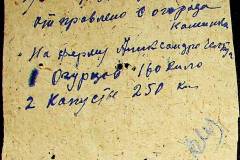 отправлено с огорода
Калинина
На ферму Александра Чех
1 Огурцов 160 кило
2 Капусты 250 кл